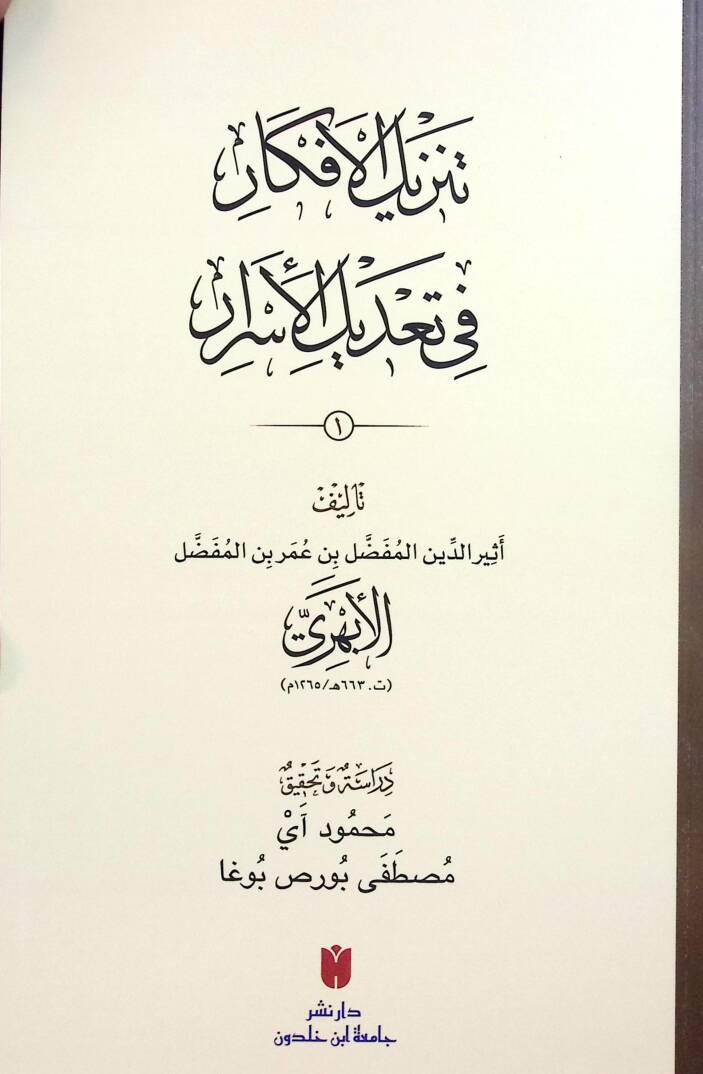 تنزيل الأفكار
في تعديل الأسرار
١
تأليف
أَثِير الدِّين المُفَضَّل بِن عُمَر بِن المُفَضَّل
الأبهريّ
(ت. ٦٦٣هـ/١٢٦٥م)
دراسة وتحقيق
مَحمُود آيْ
مُصطَفَى بُورص بُوغا
دار نشر
جامعة ابن خلدون